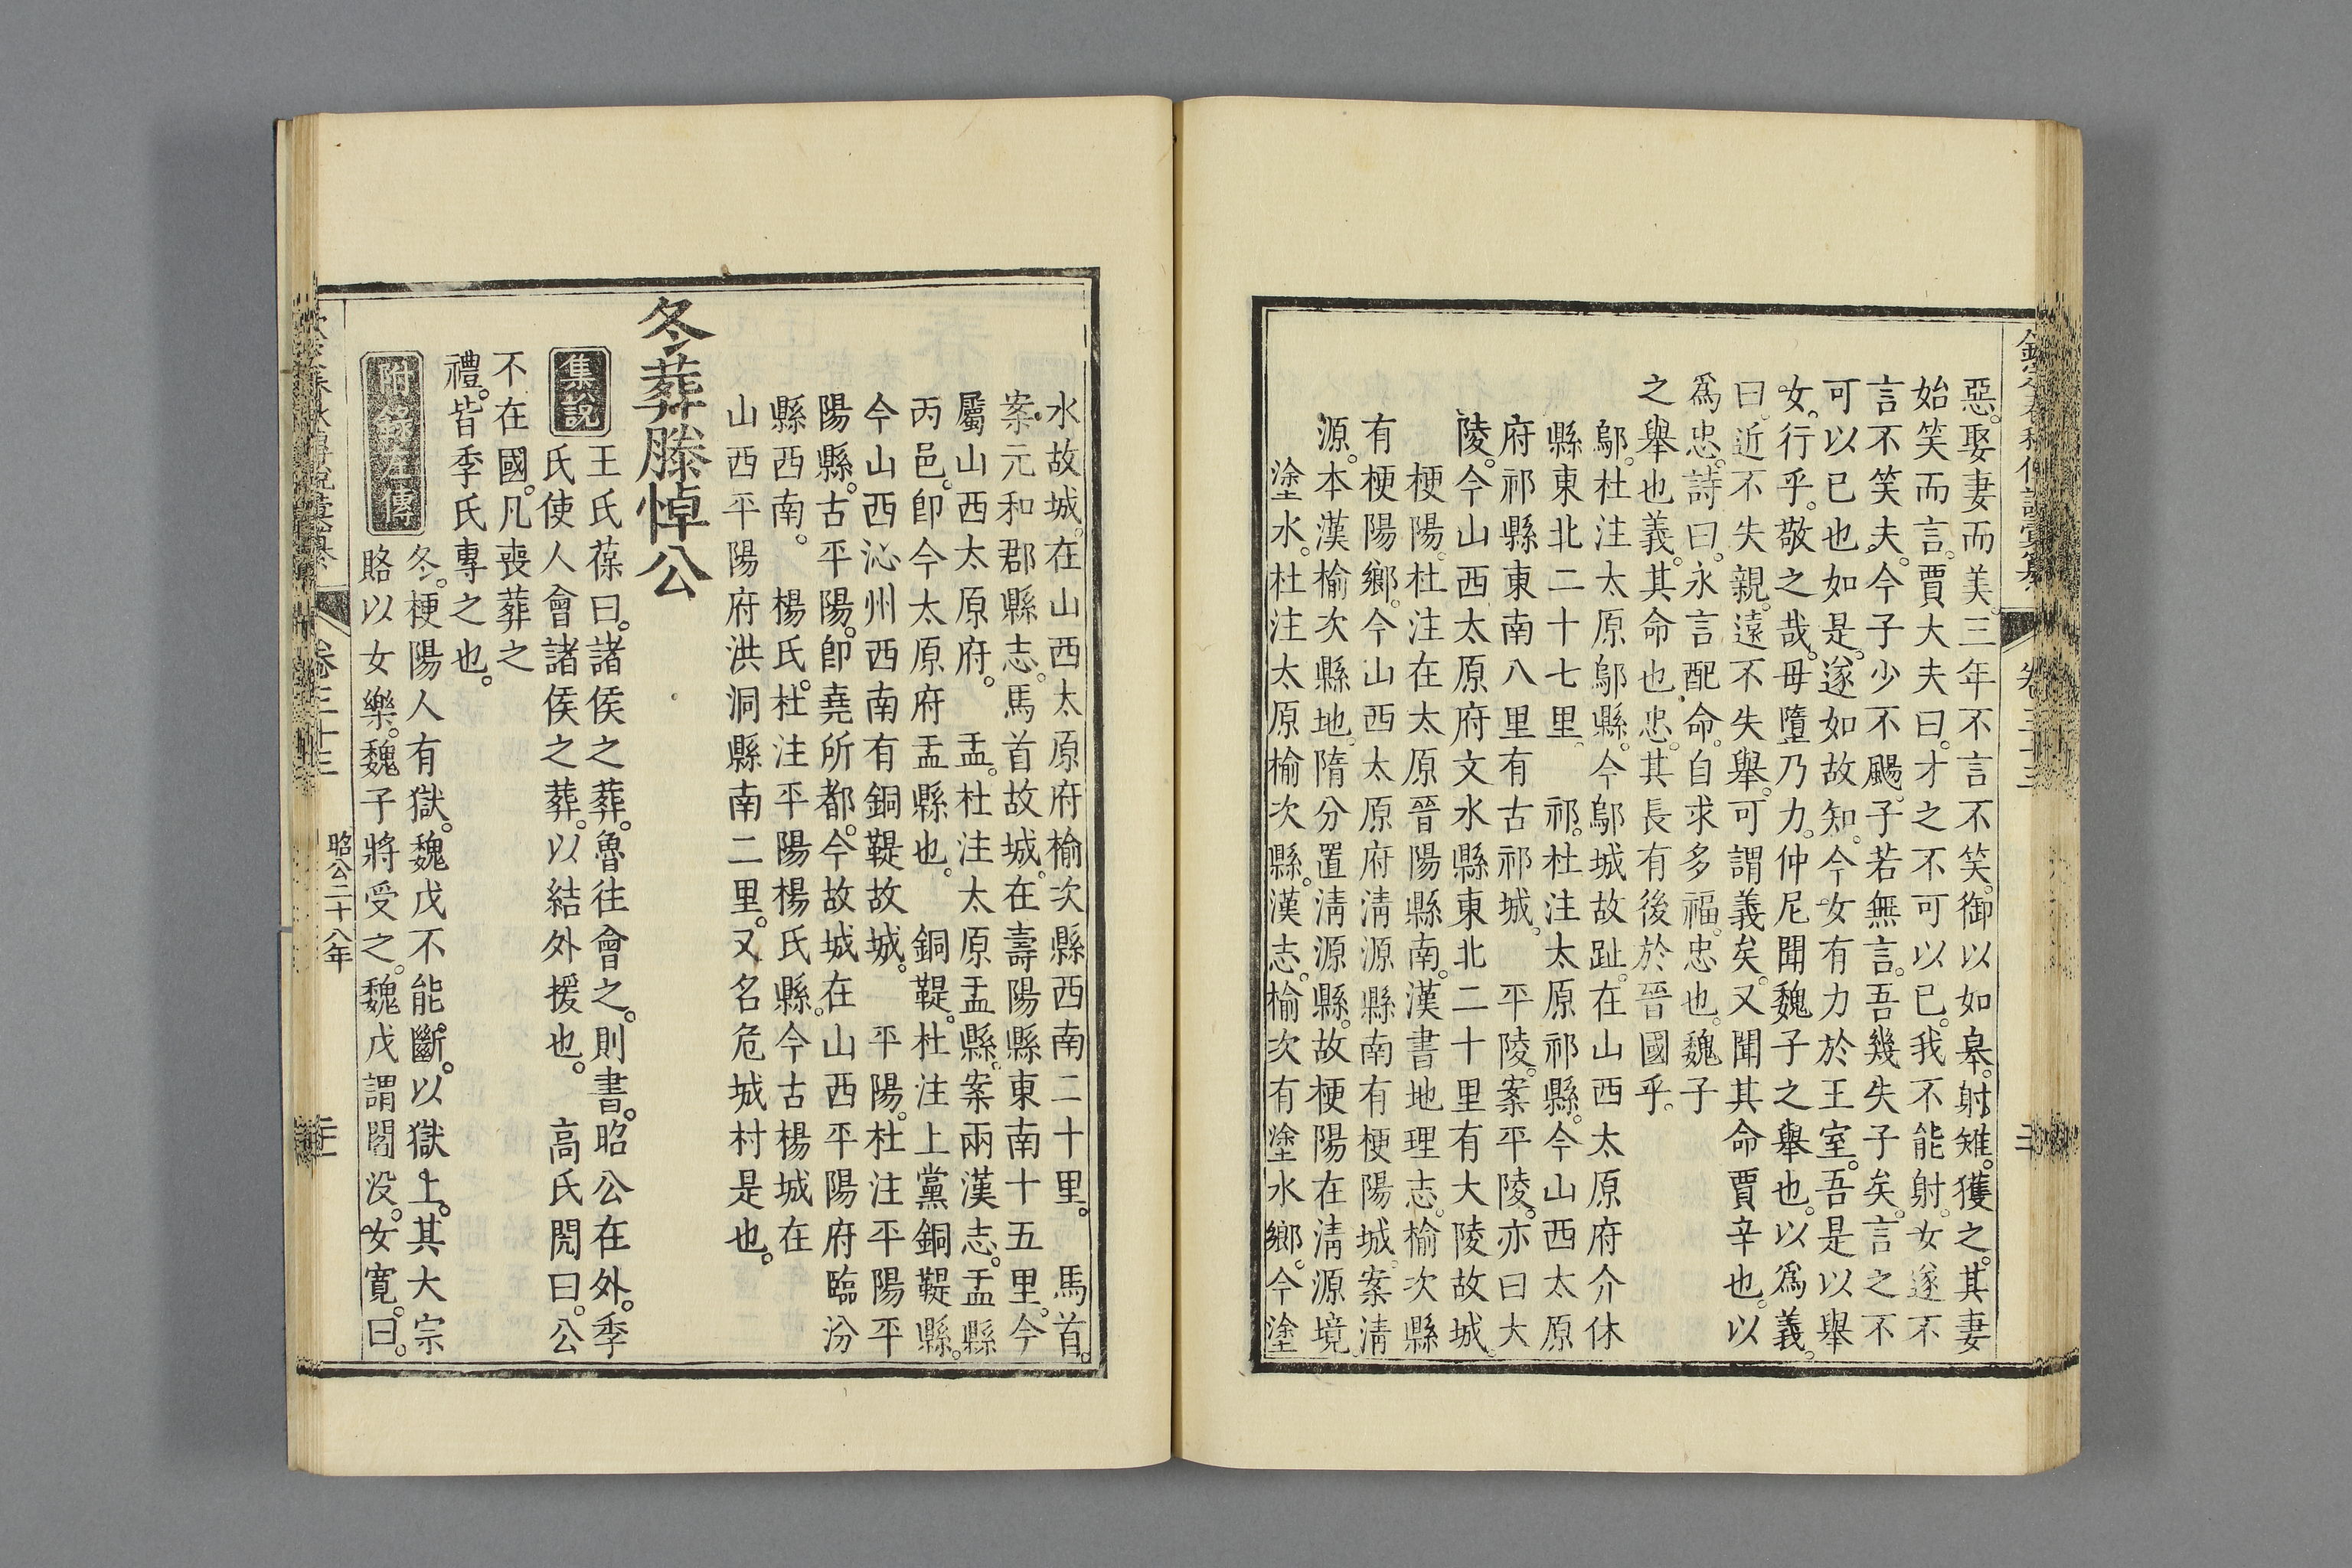 惡。娶妻而美。三年不言不笑。御以如皋。射雉。獲之。其妻
始笑而言。賈大夫曰。才之不可以已。我不能射。女遂不
言不笑夫。今子少不颺。子若無言。吾幾失子矣。言之不
可以已也如是。遂如故知。今女有力於王室。吾是以舉
女。行乎。敬之哉。毋墮乃力。仲尼聞魏子之舉也。以爲義。
曰。近不失親。遠不失舉。可謂義矣。又聞其命賈辛也。以
爲忠。詩曰。永言配命。自求多福。忠也。魏子
之舉也義。其命也忠。其長有後於晉國乎。
鄔。杜注太原鄔縣。今鄔城故趾。在山西太原府介休
縣東北二十七里。 祁。杜注太原祁縣。今山西太原
府祁縣東南八里有古祁城。 平陵。案平陵。亦曰大
陵。今山西太原府文水縣東北二十里有大陵故城。
梗陽。杜注在太原晉陽縣南。漢書地理志。榆次縣
有梗陽鄉。今山西太原府淸源縣南有梗陽城。案淸
源。本漢榆次縣地。隋分置淸源縣。故梗陽在淸源境。
塗水。杜注太原榆次縣。漢志。榆次有塗水鄉。今塗
水故城。在山西太原府榆次縣西南二十里。 馬首。
案元和郡縣志。馬首故城。在壽陽縣東南十五里。今
屬山西太原府。 盂。杜注太原盂縣。案兩漢志。盂縣
丙邑。卽今太原府盂縣也。 銅鞮。杜注上黨銅鞮縣。
今山西沁州西南有銅鞮故城。 平陽。杜注平陽平
陽縣。古平陽。卽堯所都。今故城在山西平陽府臨汾
縣西南。 楊氏。杜注平陽楊氏縣。今古楊城在
山西平陽府洪洞縣南二里。又名危城村是也。
冬葬滕悼公
集說 王氏葆曰。諸侯之葬。魯往會之。則書。昭公在外。季
氏使人會諸侯之葬。以結外援也。 高氏閌曰。公
不在國。凡喪葬之
禮。皆季氏專之也。
附錄左傳 冬。梗陽人有獄。魏戊不能斷。以獄上。其大宗
賂以女樂。魏子將受之。魏戊謂閻没。女寬。曰。
卷三十三
昭公二十八年